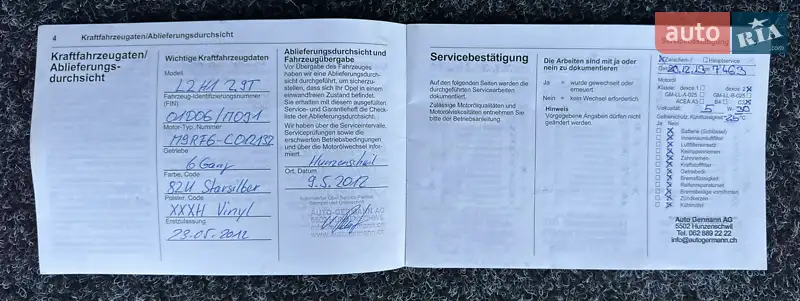 4 Kraftfahrzeugaten/Ablieferungsdurchsicht
Kraftfahrzeugaten/
Ablieferungs-
durchsicht
Wichtige Kraftfahrzeugdaten
Modell
L2H1 2,9T
Fahrzeug-Identifizierungsnummer
(FIN)
01D06/M091
Motor-Typ, Nummer
M9RF6-C012132
Getriebe
6 Gang
Farbe, Code
82U Starsilber
Polster, Code
XXXH Vinyl
Erstzulassung
23.05.2012
Ablieferungsdurchsicht und
Fahrzeugübergabe
Vor Übergabe des Fahrzeuges
haben wir eine Ablieferungsdurch-
sicht durchgeführt, um sicherzu-
stellen, dass sich Ihr Opel in einem
einwandfreien Zustand befindet.
Sie erhalten mit diesem ausgefüllten
Service- und Garantieheft die Check-
liste der Ablieferungsdurchsicht.
Wir haben über die Serviceintervalle,
Serviceprüfungen sowie die
erschwerten Betriebsbedingungen
und über die Motorölwechsel infor-
miert.
Hunzenschwil
Ort, Datum
9.5.2012
AUTO GERMANN AG
5502 HUNZENSCHWIL
Servicebestätigung
Auf den folgenden Seiten werden die
durchgeführten Servicearbeiten
dokumentiert.
Zulässige Motorölqualitäten und
Motorölviskositäten entnehmen Sie
bitte der Betriebsanleitung.
Die Arbeiten sind mit ja oder
nein zu dokumentieren
Ja = wurde gewechselt oder
erneuert
Nein = kein Wechsel erforderlich
Hinweis
Vorgegebene Angaben dürfen nicht
geändert werden.
Servicebestätigung
Zwischen-/ Hauptservice
20.12.13 7463
Motoröl
Klasse: dexos 1 dexos 2
GM-LL-A-025 GM-LL-B-025
ACEA A3 B4 C3
Viskosität: 5 W 30
Gefrierschutz, Kühlflüssigkeit -25°C
Ja Nein
Batterie (Schlüssel)
Innenraumluftfilter
Luftfiltereinsatz
Keilrippenriemen
Zahnriemen
Kraftstofffilter
Getriebeöl
Bremsflüssigkeit
Reifenreparaturset
Bremsbeläge vorn/hinten
Zündkerzen
Kältemittel
Auto Germann AG
5502 Hunzenschwil
Tel. 062 889 22 22
info@autogermann.ch
auto RIA.com